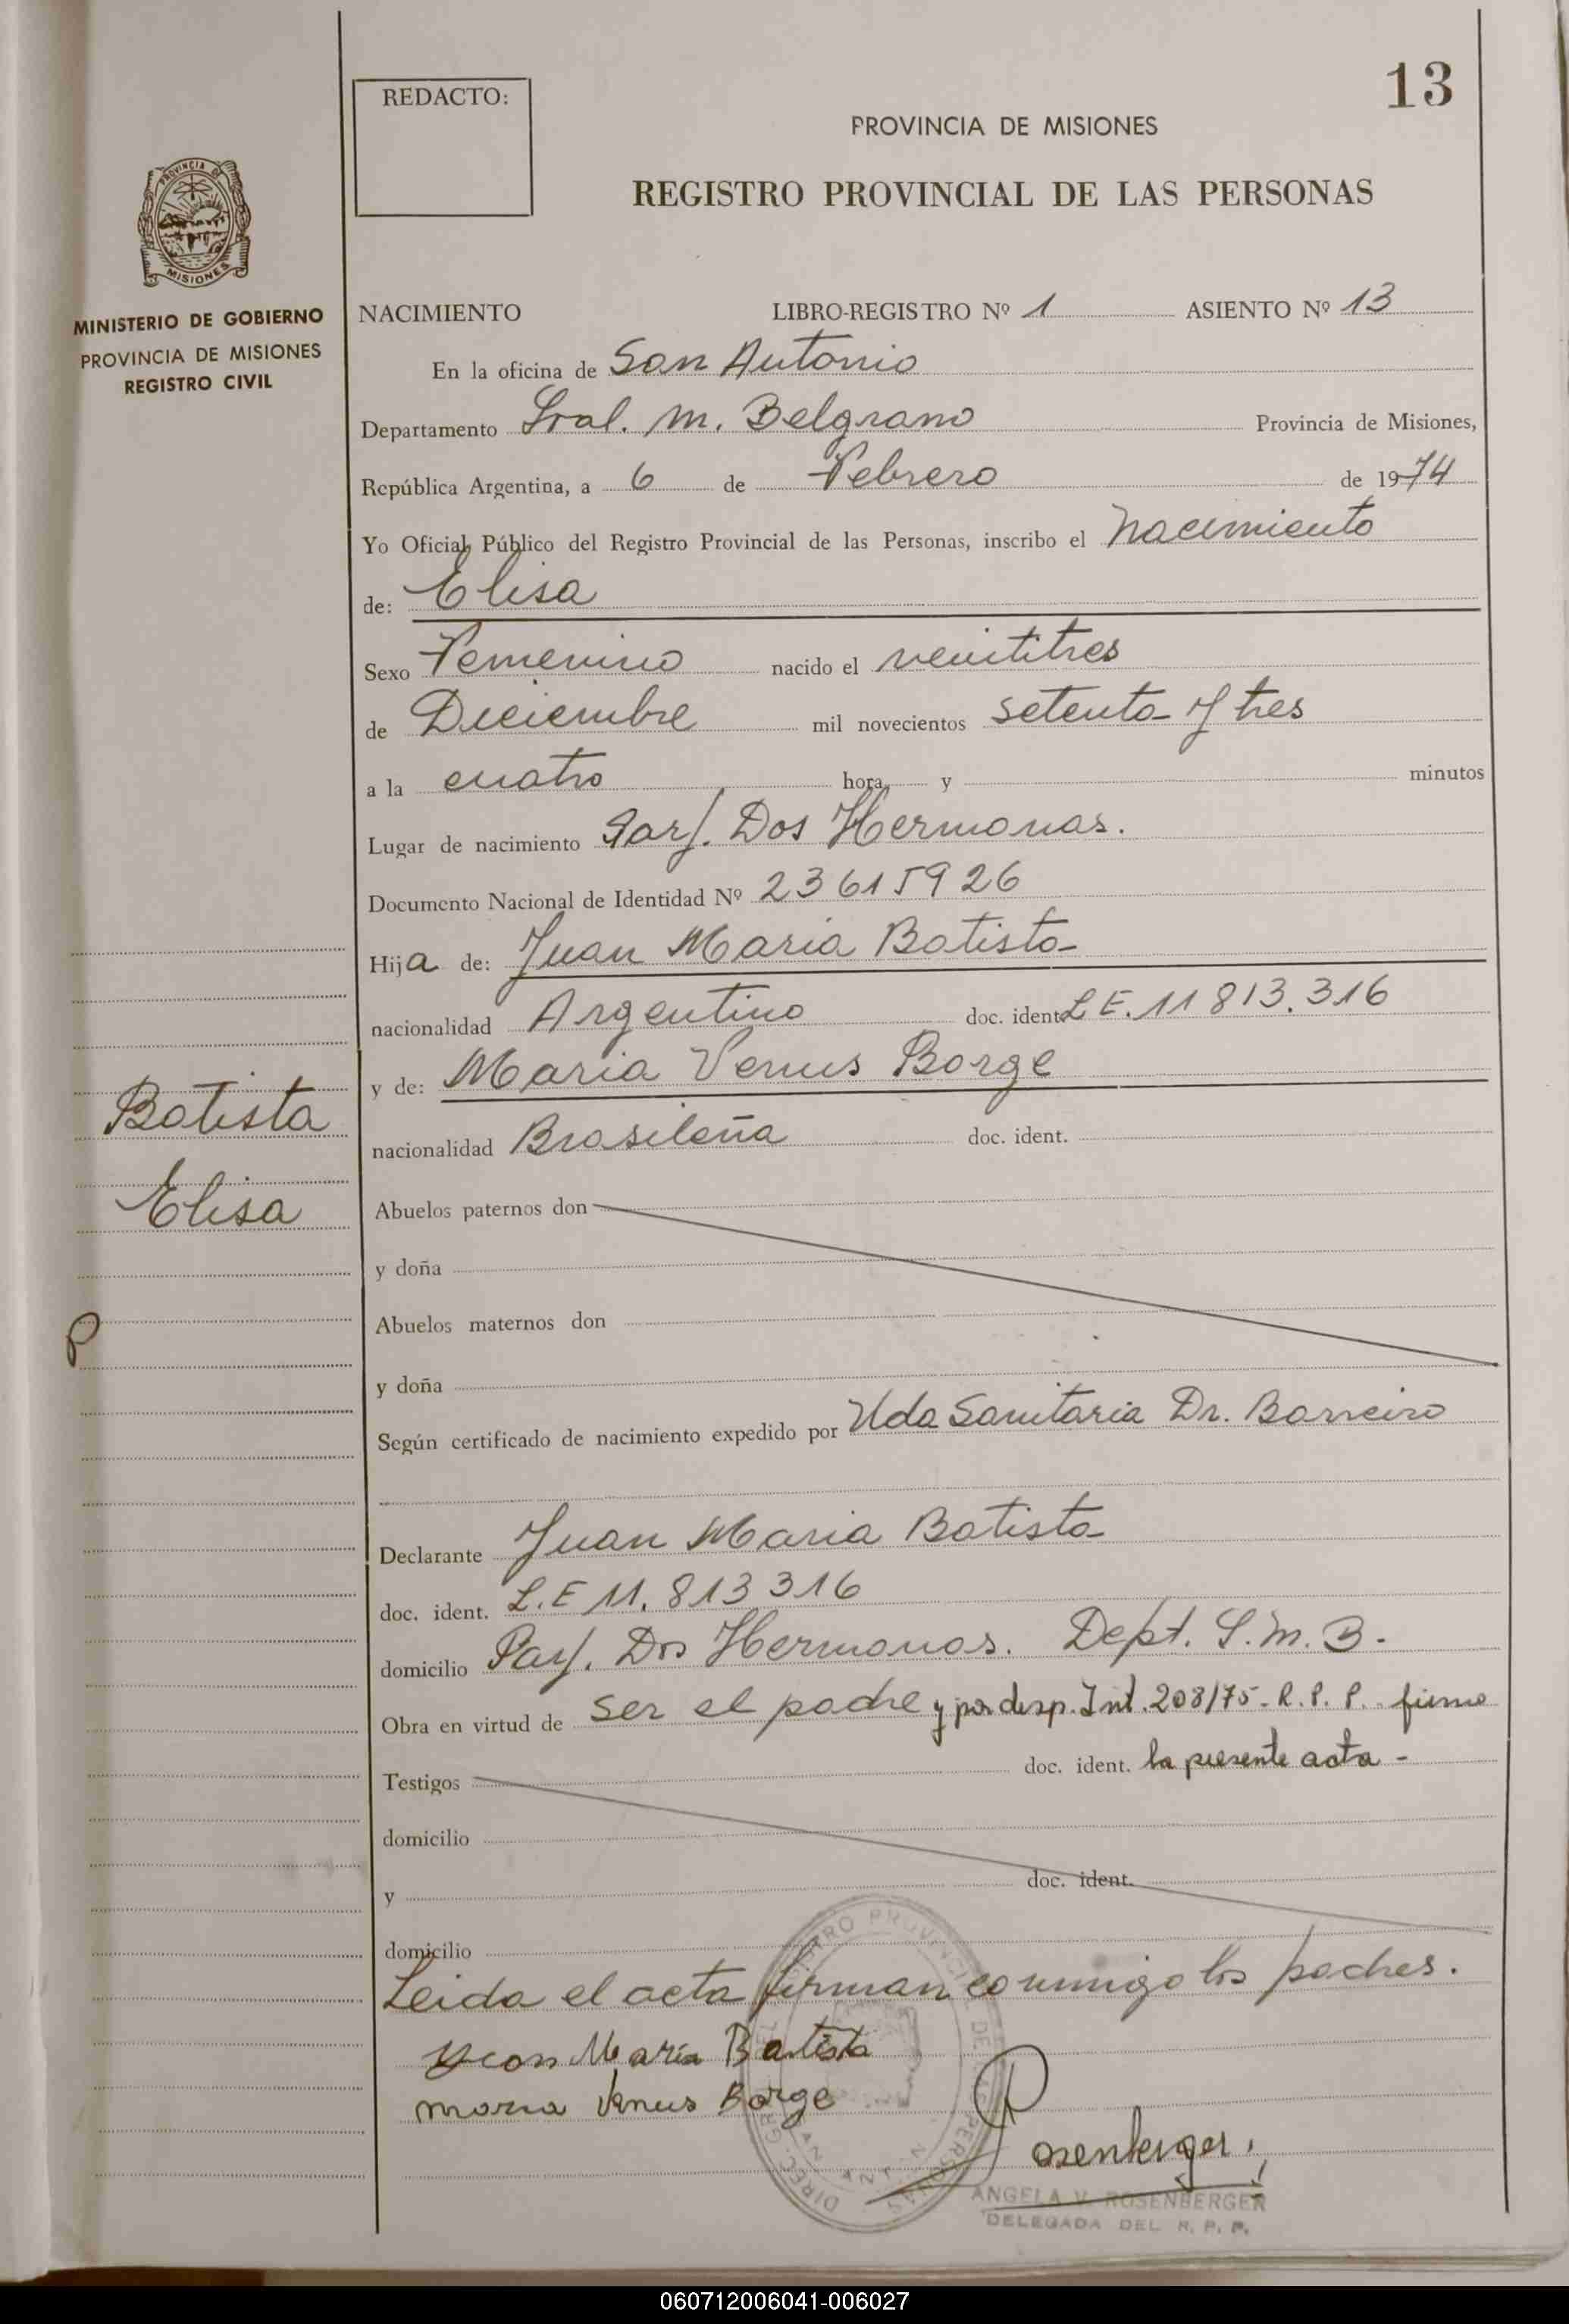 13
REDACTO:
PROVINCIA DE MISIONES
REGISTRO PROVINCIAL DE LAS PERSONAS
PROVINCIA DE
MISIONES
MINISTERIO DE GOBIERNO
PROVINCIA DE MISIONES
REGISTRO CIVIL
NACIMIENTO LIBRO-REGISTRO Nº 1 ASIENTO Nº 13
En la oficina de San Antonio
Departamento Gral. M. Belgrano Provincia de Misiones,
República Argentina, a 6 de Febrero de 1974
Yo Oficial Público del Registro Provincial de las Personas, inscribo el Nacimiento
de: Elisa
Sexo Femenino nacido el veintitres
de Diciembre mil novecientos setenta y tres
a la cuatro hora y minutos
Lugar de nacimiento Parj. Dos Hermanas.
Documento Nacional de Identidad Nº 23615926
Hija de: Juan Maria Batista
nacionalidad Argentino doc. ident. L E. 11 813.316
y de: Maria Venus Borge
nacionalidad Brasileña doc. ident.
Batista
Elisa
Abuelos paternos don
y doña
Abuelos maternos don
y doña
Según certificado de nacimiento expedido por Uda Sanitaria Dr. Barreiro
Declarante Juan Maria Batista
doc. ident. L.E 11.813316
domicilio Parj. Dos Hermanas. Dept. G.M.B.
Obra en virtud de ser el padre y por desp. Int. 208/75-R.P.P. firmo
Testigos doc. ident. la presente acta -
domicilio
y doc. ident.
domicilio
Leida el acta firman conmigo los padres.
Maria Batista
maria Venus Borge
Rosenberger
ANGELA V. ROSENBERGER
DELEGADA DEL R. P. P.
060712006041-006027